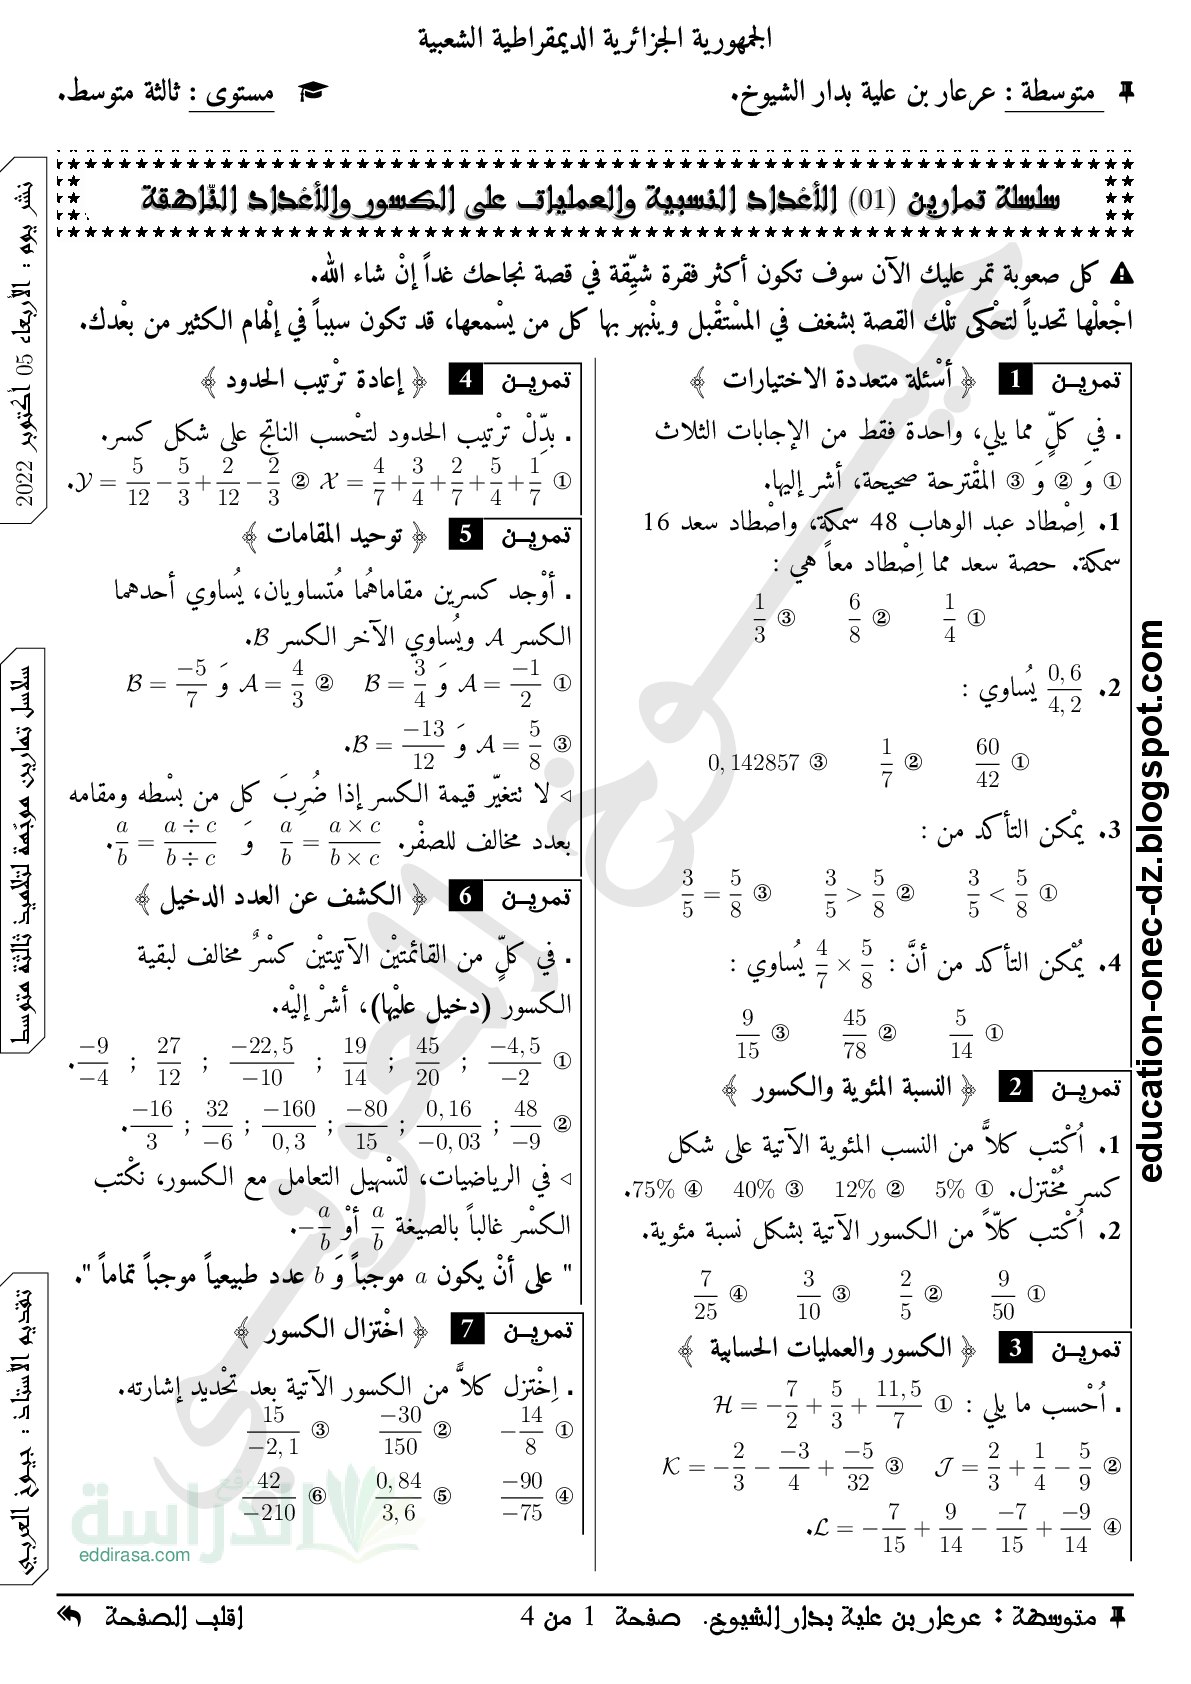 الجمهورية الجزائرية الديمقراطية الشعبية
متوسطة : عرعار بن علية بدار الشيوخ.
مستوى : ثالثة متوسط.
سلسلة تمارين (01) الأعداد النسبية والعمليات على الكسور والأعداد الناطقة
كل صعوبة تمر عليك الآن سوف تكون أكثر فقرة شيّقة في قصة نجاحك غداً إنْ شاء الله.
اجْعلْها تحدياً لتحْكى تلْك القصة بشغف في المسْتقْبل وينْبهر بها كل من يسْمعها، قد تكون سبباً في إلْهام الكثير من بعْدك.
تمريـن 1 ﴿ أسْئلة متعددة الاختيارات ﴾
. في كلٍّ مما يلي، واحدة فقط من الإجابات الثلاث
① وَ ② وَ ③ المقْترحة صحيحة، أشر إليها.
1. اِصْطاد عبد الوهاب 48 سمكة، واصْطاد سعد 16
سمكة. حصة سعد مما اِصْطاد معاً هي :
① 1/4 ② 6/8 ③ 1/3
2. 0,6/4,2 يُساوي :
① 60/42 ② 1/7 ③ 0,142857
3. يمْكن التأكد من :
① 3/5 < 5/8 ② 3/5 > 5/8 ③ 3/5 = 5/8
4. يُمْكن التأكد من أنَّ : 4/7 × 5/8 يُساوي :
① 5/14 ② 45/78 ③ 9/15
تمريـن 2 ﴿ النسبة المئوية والكسور ﴾
1. اُكْتب كلاًّ من النسب المئوية الآتية على شكل
كسر مُخْتزل. ① 5% ② 12% ③ 40% ④ 75%.
2. اُكْتب كلاًّ من الكسور الآتية بشكل نسبة مئوية.
① 9/50 ② 2/5 ③ 3/10 ④ 7/25
تمريـن 3 ﴿ الكسور والعمليات الحسابية ﴾
. اُحْسب ما يلي : ① H = −7/2 + 5/3 + 11,5/7
② J = 2/3 + 1/4 − 5/9 ③ K = −2/3 − −3/4 + −5/32
④ L = −7/15 + 9/14 − −7/15 + −9/14.
تمريـن 4 ﴿ إعادة ترْتيب الحدود ﴾
. بدِّلْ ترْتيب الحدود لتحْسب الناتج على شكل كسر.
① X = 4/7 + 3/4 + 2/7 + 5/4 + 1/7 ② Y = 5/12 − 5/3 + 2/12 − 2/3.
تمريـن 5 ﴿ توحيد المقامات ﴾
. أوْجد كسرين مقاماهُما مُتساويان، يُساوي أحدهما
الكسر A ويُساوي الآخر الكسر B.
① A = −1/2 وَ B = 3/4 ② A = 4/3 وَ B = −5/7
③ A = 5/8 وَ B = −13/12.
◁ لا تتغيّر قيمة الكسر إذا ضُرِبَ كل من بسْطه ومقامه
بعدد مخالف للصفْر. a/b = a × c/b × c وَ a/b = a ÷ c/b ÷ c.
تمريـن 6 ﴿ الكشف عن العدد الدخيل ﴾
. في كلٍّ من القائمتيْن الآتيتيْن كسْرٌ مخالف لبقية
الكسور (دخيل عليْها)، أشرْ إليْه.
① −4,5/−2 ; 45/20 ; 19/14 ; −22,5/−10 ; 27/12 ; −9/−4.
② 48/−9 ; 0,16/−0,03 ; −80/15 ; −160/0,3 ; 32/−6 ; −16/3.
◁ في الرياضيات، لتسْهيل التعامل مع الكسور، نكْتب
الكسْر غالباً بالصيغة a/b أوْ −a/b.
" على أنْ يكون a موجباً وَ b عدد طبيعياً موجباً تماماً ".
تمريـن 7 ﴿ اخْتزال الكسور ﴾
. اِخْتزل كلاًّ من الكسور الآتية بعد تحْديد إشارته.
① −14/8 ② −30/150 ③ 15/−2,1
④ −90/−75 ⑤ 0,84/3,6 ⑥ 42/−210
متوسطة : عرعار بن علية بدار الشيوخ. صفحة 1 من 4 اقلب الصفحة
نشر يوم : الأربعاء 05 أكتوبر 2022
سلاسل تمارين موجّهة لتلاميذ ثالثة متوسط
تقديم الأستاذ : جيوخ العربي
education-onec-dz.blogspot.com
جيوخ العربي
موقع الدراسة
eddirasa.com